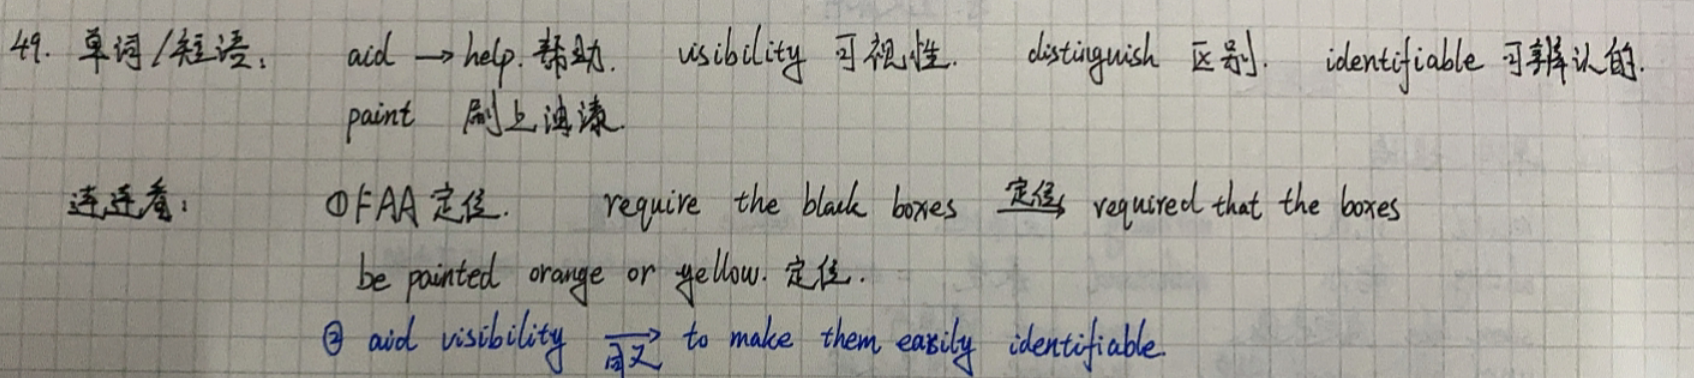 49. 单词/短语: aid → help. 帮助. visibility 可视性. distinguish 区别. identifiable 可辨认的.
paint 刷上油漆.
连连看: ①FAA 定位. require the black boxes 定位→ required that the boxes
be painted orange or yellow. 定位.
② aid visibility 同义→ to make them easily identifiable.